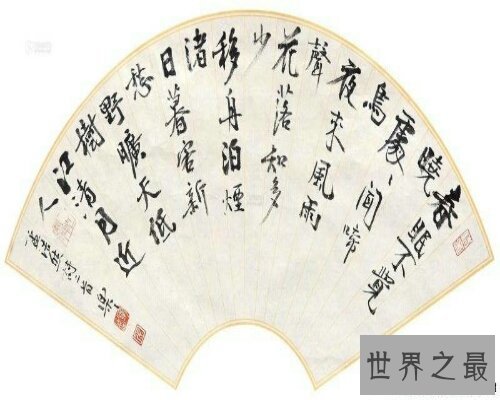 春眠不覺
曉
處、聞啼
鳥
夜來風雨
聲
花落知多
少
移舟泊煙
渚
日暮客新
愁
野曠天低
樹
江清月近
人
孟浩然詩二首
世界之最